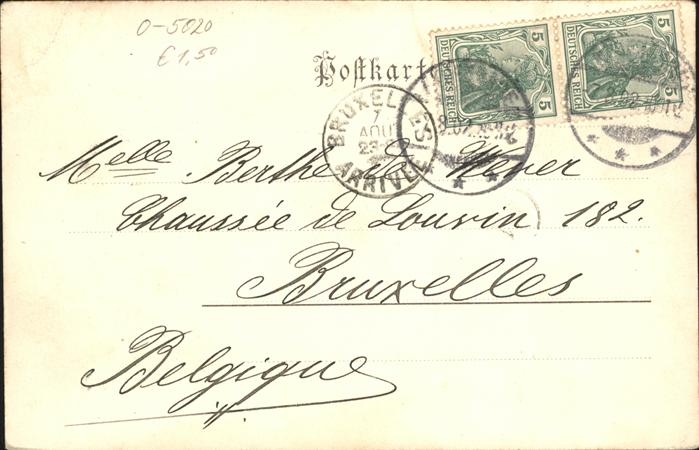 O-5020
€1,50
Postkarte
5 DEUTSCHES REICH 5
5 DEUTSCHES REICH 5
BRUXELLES
7
AOUT
23-
ARRIVÉE
Melle Berthe De
Chaussée de Louvin 182.
Bruxelles
Belgique